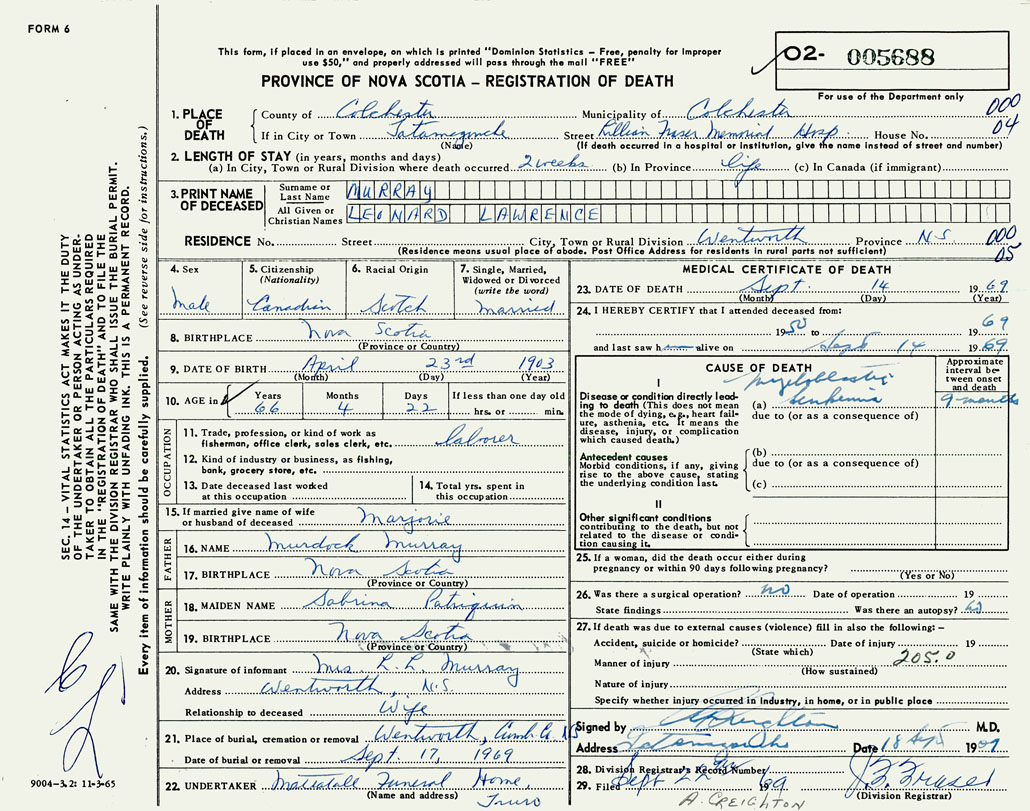 FORM 6
This form, if placed in an envelope, on which is printed "Dominion Statistics – Free, penalty for improper
use $50," and properly addressed will pass through the mail "FREE"
O2- 005688
PROVINCE OF NOVA SCOTIA – REGISTRATION OF DEATH
For use of the Department only
1. PLACE OF DEATH
County of Colchester Municipality of Colchester 000
If in City or Town Tatamagouche Street Lillian Fraser Memorial Hosp. House No. 04
(Name) (If death occurred in a hospital or institution, give the name instead of street and number)
2. LENGTH OF STAY (in years, months and days)
(a) In City, Town or Rural Division where death occurred 2 weeks (b) In Province life (c) In Canada (if immigrant)
3. PRINT NAME OF DECEASED
Surname or Last Name MURRAY
All Given or Christian Names LEONARD LAWRENCE
RESIDENCE No. Street City, Town or Rural Division Wentworth Province N.S. 000
(Residence means usual place of abode. Post Office Address for residents in rural parts not sufficient) 05
4. Sex Male
5. Citizenship (Nationality) Canadian
6. Racial Origin Scotch
7. Single, Married, Widowed or Divorced (write the word) Married
8. BIRTHPLACE Nova Scotia
(Province or Country)
9. DATE OF BIRTH April 23rd 1903
(Month) (Day) (Year)
10. AGE in Years 66 Months 4 Days 22 If less than one day old hrs. or min.
OCCUPATION
11. Trade, profession, or kind of work as fisherman, office clerk, sales clerk, etc. laborer
12. Kind of industry or business, as fishing, bank, grocery store, etc.
13. Date deceased last worked at this occupation
14. Total yrs. spent in this occupation
15. If married give name of wife or husband of deceased Marjorie
FATHER
16. NAME Murdock Murray
17. BIRTHPLACE Nova Scotia
(Province or Country)
MOTHER
18. MAIDEN NAME Sabrina Patriquin
19. BIRTHPLACE Nova Scotia
(Province or Country)
20. Signature of informant Mrs. L. L. Murray
Address Wentworth, N.S.
Relationship to deceased Wife
21. Place of burial, cremation or removal Wentworth, Cumb. Co. NS
Date of burial or removal Sept. 17, 1969
22. UNDERTAKER Mattatall Funeral Home,
(Name and address) Truro
MEDICAL CERTIFICATE OF DEATH
23. DATE OF DEATH Sept. 14 1969
(Month) (Day) (Year)
24. I HEREBY CERTIFY that I attended deceased from:
1950 to 1969
and last saw h alive on Sept 14 1969
CAUSE OF DEATH
Approximate interval between onset and death
I
Disease or condition directly leading to death (This does not mean the mode of dying, e.g., heart failure, asthenia, etc. It means the disease, injury, or complication which caused death.)
(a) Myeloblastic leukemia 9 months
due to (or as a consequence of)
Antecedent causes
Morbid conditions, if any, giving rise to the above cause, stating the underlying condition last.
(b)
due to (or as a consequence of)
(c)
II
Other significant conditions contributing to the death, but not related to the disease or condition causing it.
25. If a woman, did the death occur either during pregnancy or within 90 days following pregnancy?
(Yes or No)
26. Was there a surgical operation? no Date of operation 19
State findings Was there an autopsy? no
27. If death was due to external causes (violence) fill in also the following: –
Accident, suicide or homicide? Date of injury 19
(State which)
Manner of injury 205.0
(How sustained)
Nature of injury
Specify whether injury occurred in industry, in home, or in public place
Signed by Creighton M.D.
Address Tatamagouche Date 18 Sept 1969
28. Division Registrar's Record Number
29. Filed Sept 22 1969
(Division Registrar)
A. CREIGHTON
SEC. 14 – VITAL STATISTICS ACT MAKES IT THE DUTY
OF THE UNDERTAKER OR PERSON ACTING AS UNDER-
TAKER TO OBTAIN ALL THE PARTICULARS REQUIRED
IN THE "REGISTRATION OF DEATH" AND TO FILE THE
SAME WITH THE DIVISION REGISTRAR WHO SHALL ISSUE THE BURIAL PERMIT.
WRITE PLAINLY WITH UNFADING INK. THIS IS A PERMANENT RECORD.
Every item of information should be carefully supplied. (See reverse side for instructions.)
9004–3.2: 11-3-65